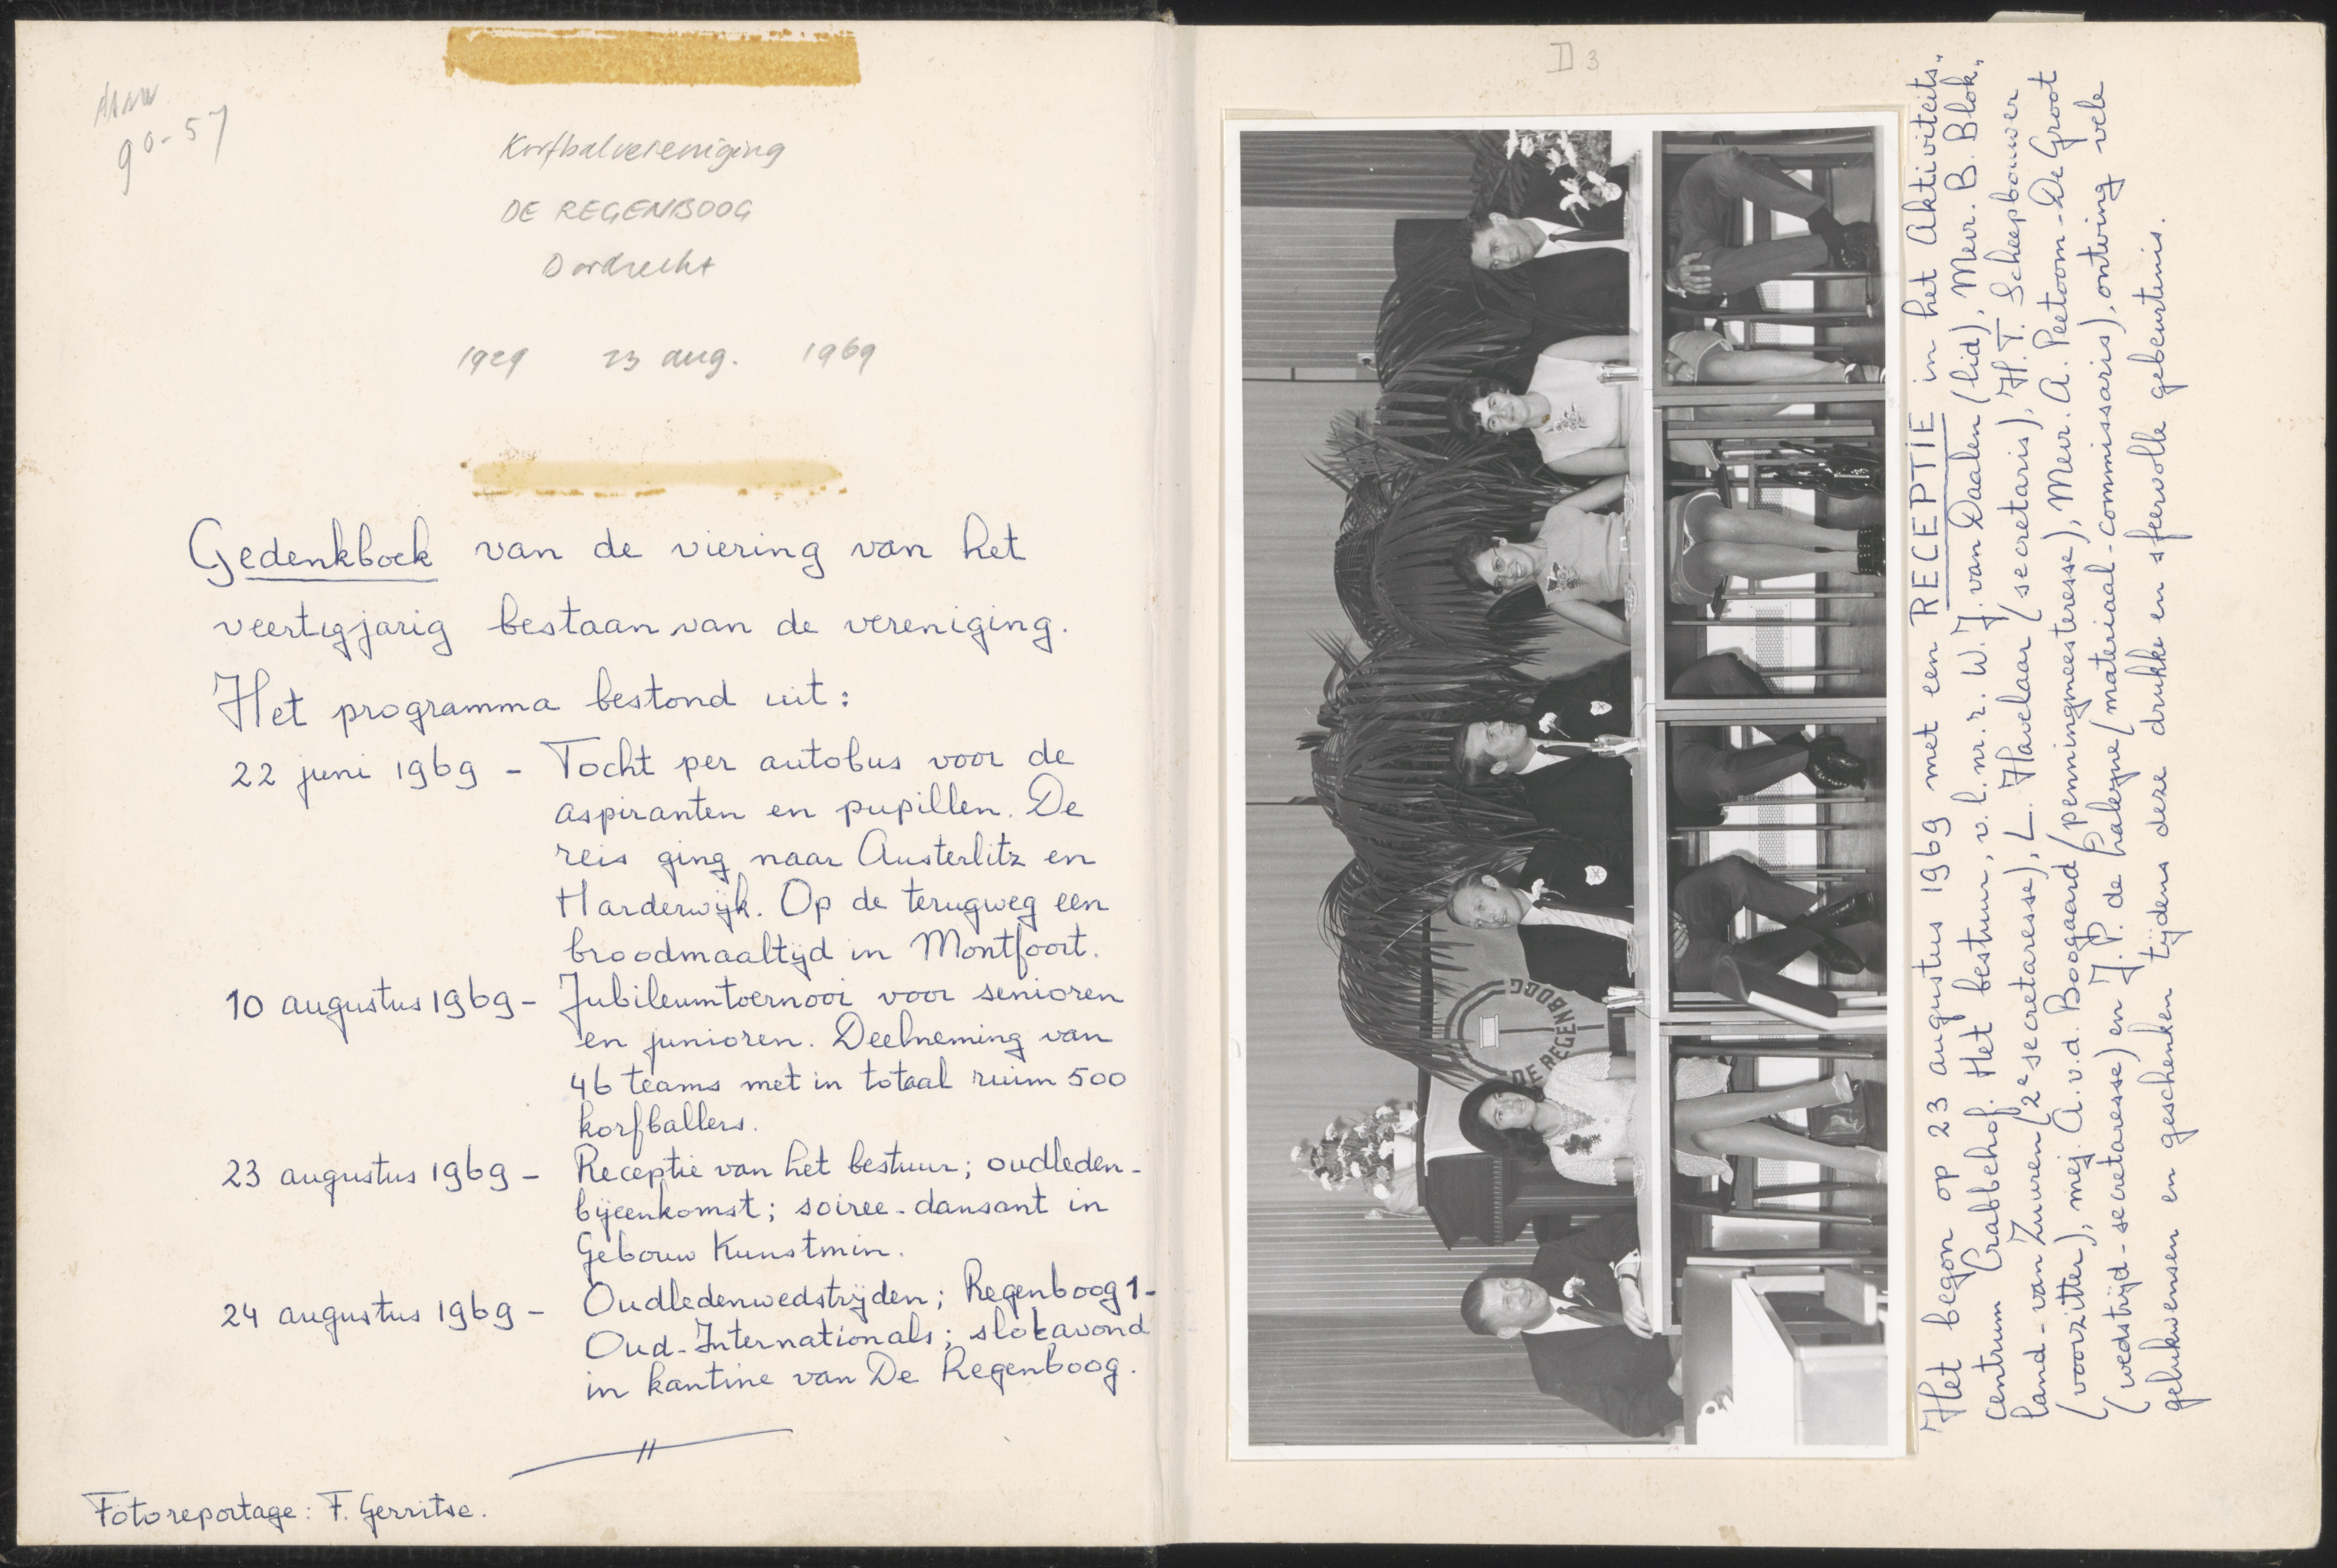 90-57
Korfbalvereniging
DE REGENBOOG
Dordrecht
1929 23 aug. 1969
Gedenkboek van de viering van het
veertigjarig bestaan van de vereniging.
Het programma bestond uit:
22 juni 1969 - Tocht per autobus voor de
aspiranten en pupillen. De
reis ging naar Austerlitz en
Harderwijk. Op de terugweg een
broodmaaltijd in Montfoort.
10 augustus 1969 - Jubileumtoernooi voor senioren
en junioren. Deelneming van
46 teams met in totaal ruim 500
korfballers.
23 augustus 1969 - Receptie van het bestuur; oudleden-
bijeenkomst; soiree-dansant in
Gebouw Kunstmin.
24 augustus 1969 - Oudledenwedstrijden; Regenboog 1-
Oud-Internationals; slotavond
in kantine van De Regenboog.
Fotoreportage: F. Gerritse.
II 3
DE REGENBOOG
Het begon op 23 augustus 1969 met een RECEPTIE in het Aktiviteits-
centrum Crabbehof. Het bestuur, v.l.nr.r. W.J. van Daalen (lid), Mevr. B. Blok-
land-van Zuuren (2e secretaresse), L. Havelaar (secretaris), H.T. Scheepbouwer
(voorzitter), mej. A. v.d. Boogaard (penningmeesteresse), Mevr. A. Peetoom-De Groot
(wedstrijd-secretaresse) en J.P. de (materiaal-commissaris), ontving vele
gelukwensen en geschenken tijdens deze drukke en sfeervolle gebeurtenis.